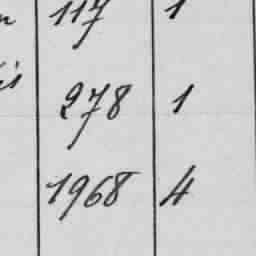 117 1
278 1
1968 4